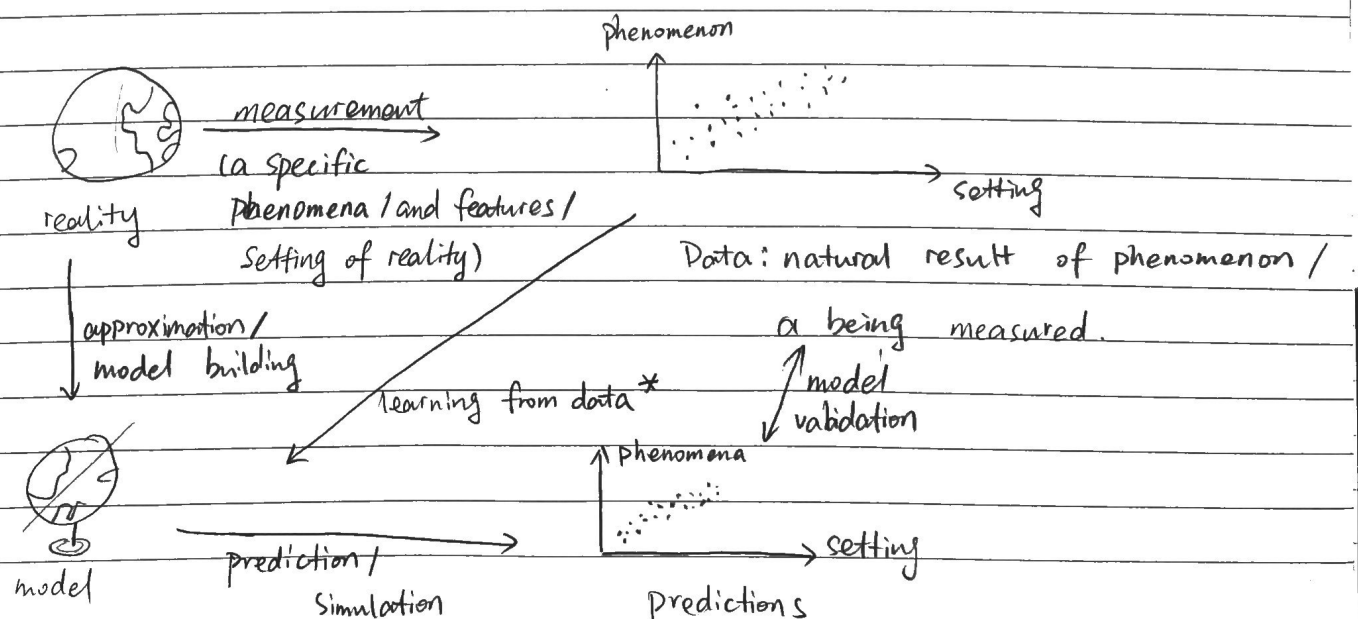 phenomenon
measurement
(a specific
phenomena / and features /
setting of reality)
reality
setting
Data: natural result of phenomenon /
a being measured.
approximation/
model building
learning from data*
model
validation
phenomena
setting
prediction/
simulation
model
predictions